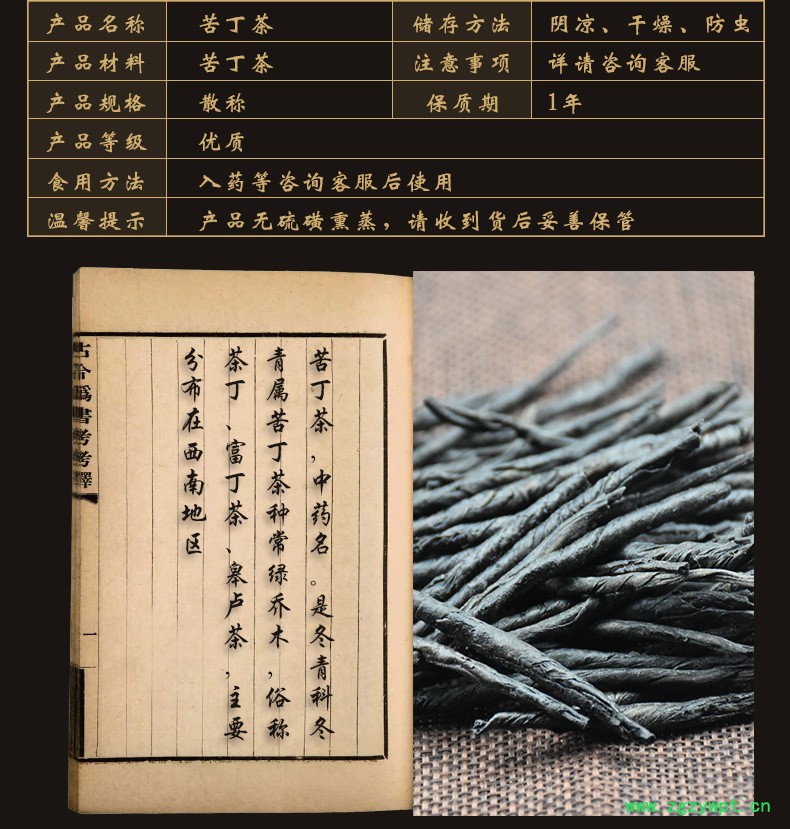 产品名称 苦丁茶 储存方法 阴凉、干燥、防虫
产品材料 苦丁茶 注意事项 详请咨询客服
产品规格 散称 保质期 1年
产品等级 优质
食用方法 入药等咨询客服后使用
温馨提示 产品无硫磺熏蒸，请收到货后妥善保管
苦丁茶，中药名。是冬青科冬
青属苦丁茶种常绿乔木，俗称
茶丁、富丁茶、皋卢茶，主要
分布在西南地区
書考考釋
一
www.zgzympt.cn